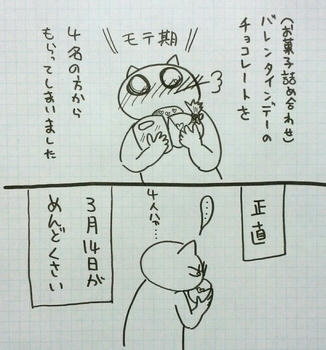 (お菓子詰め合わせ)
バレンタインデーの
チョコレートを
モテ期
4名の方から
もらってしまいました
正直
・・・・・
4人は…
3月14日が
めんどくさい